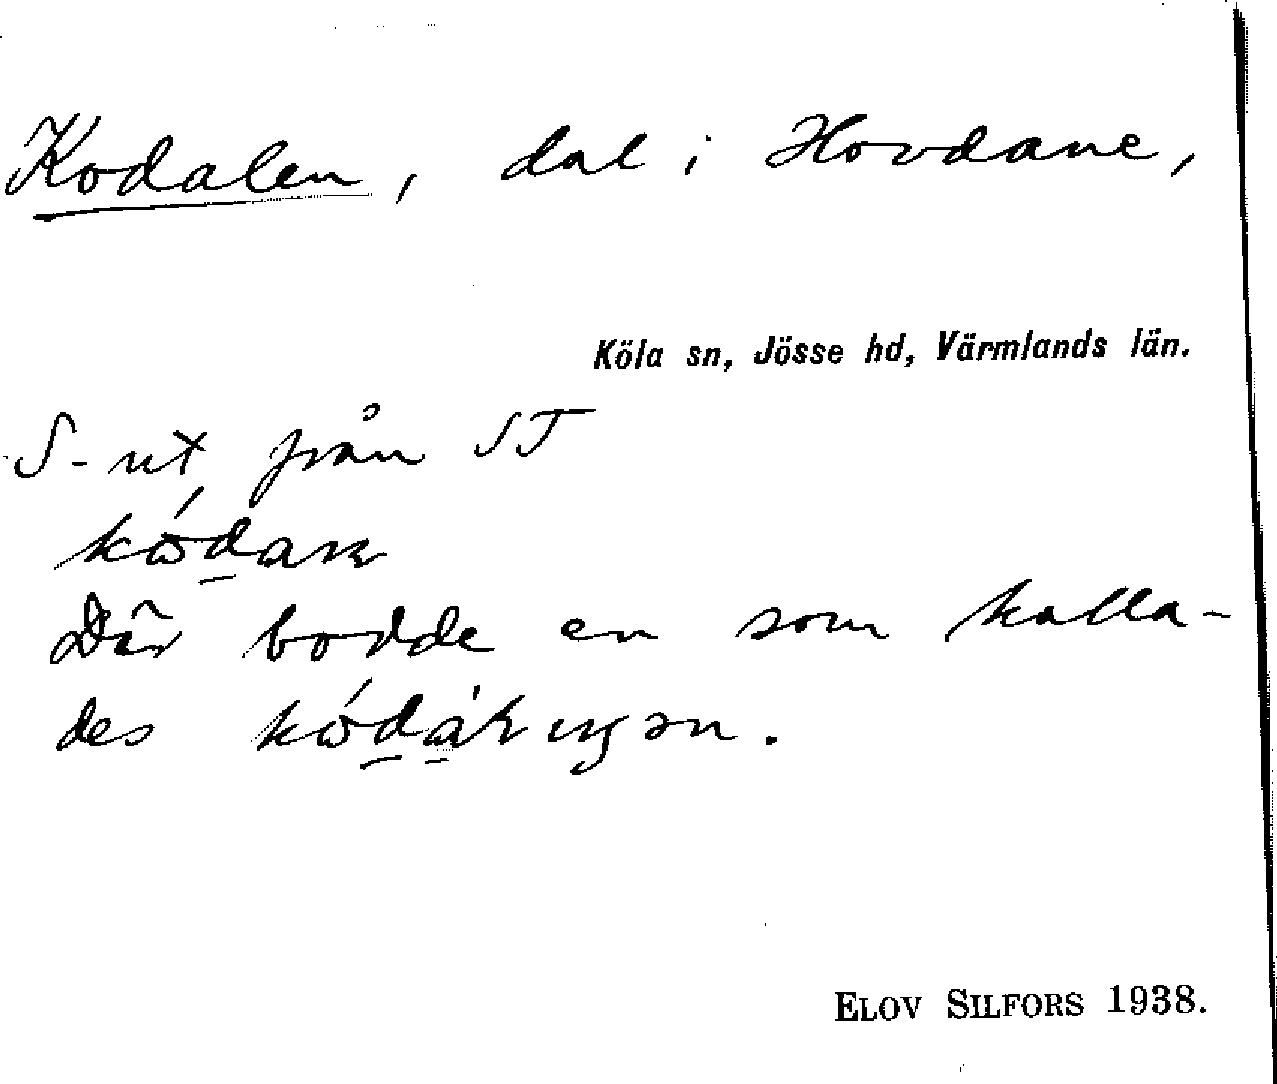 Kodalen, dal i Hovdane,
Köla sn, Jösse hd, Värmlands län.
S-ut från ST
Där bodde en som kalla-
des
ELOV SILFORS 1938.